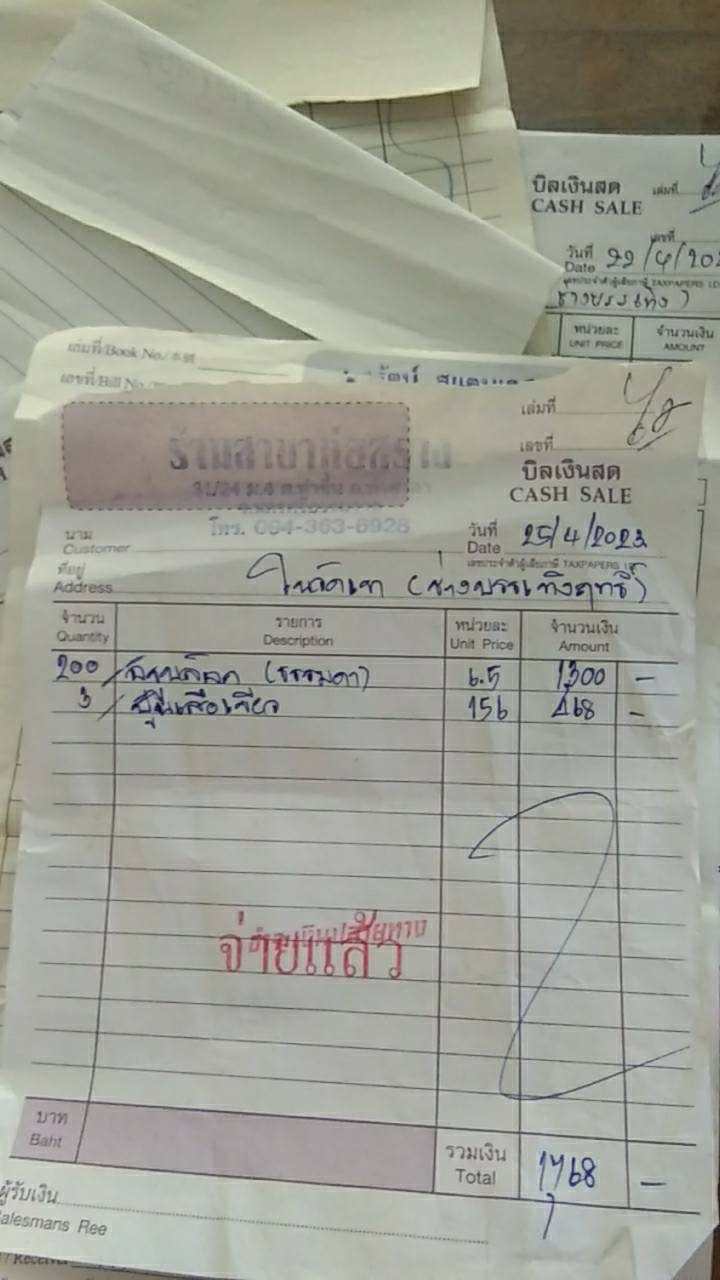 บิลเงินสด เล่มที่
CASH SALE
เลขที่
วันที่
Date 22/4/202
หน่วยละ จำนวนเงิน
UNIT PRICE AMOUNT
เล่มที่/Book No./
เลขที่/Bill No.
เล่มที่ 1/2
เลขที่
บิลเงินสด
CASH SALE
โทร. 094-363-6928
นาม
Customer
วันที่
Date 25/4/2023
เลขประจำตัวผู้เสียภาษี TAXPAPERS
ที่อยู่
Address (ช่างบรรเทิงฤทธิ์)
จำนวน รายการ หน่วยละ จำนวนเงิน
Quantity Description Unit Price Amount
200 (ธรรมดา) 6.5 1300 -
3 ปูนเสือเขียว 156 468 -
จ่ายแล้ว
บาท
Baht
รวมเงิน
Total 1,768 -
ผู้รับเงิน
alesmans Ree